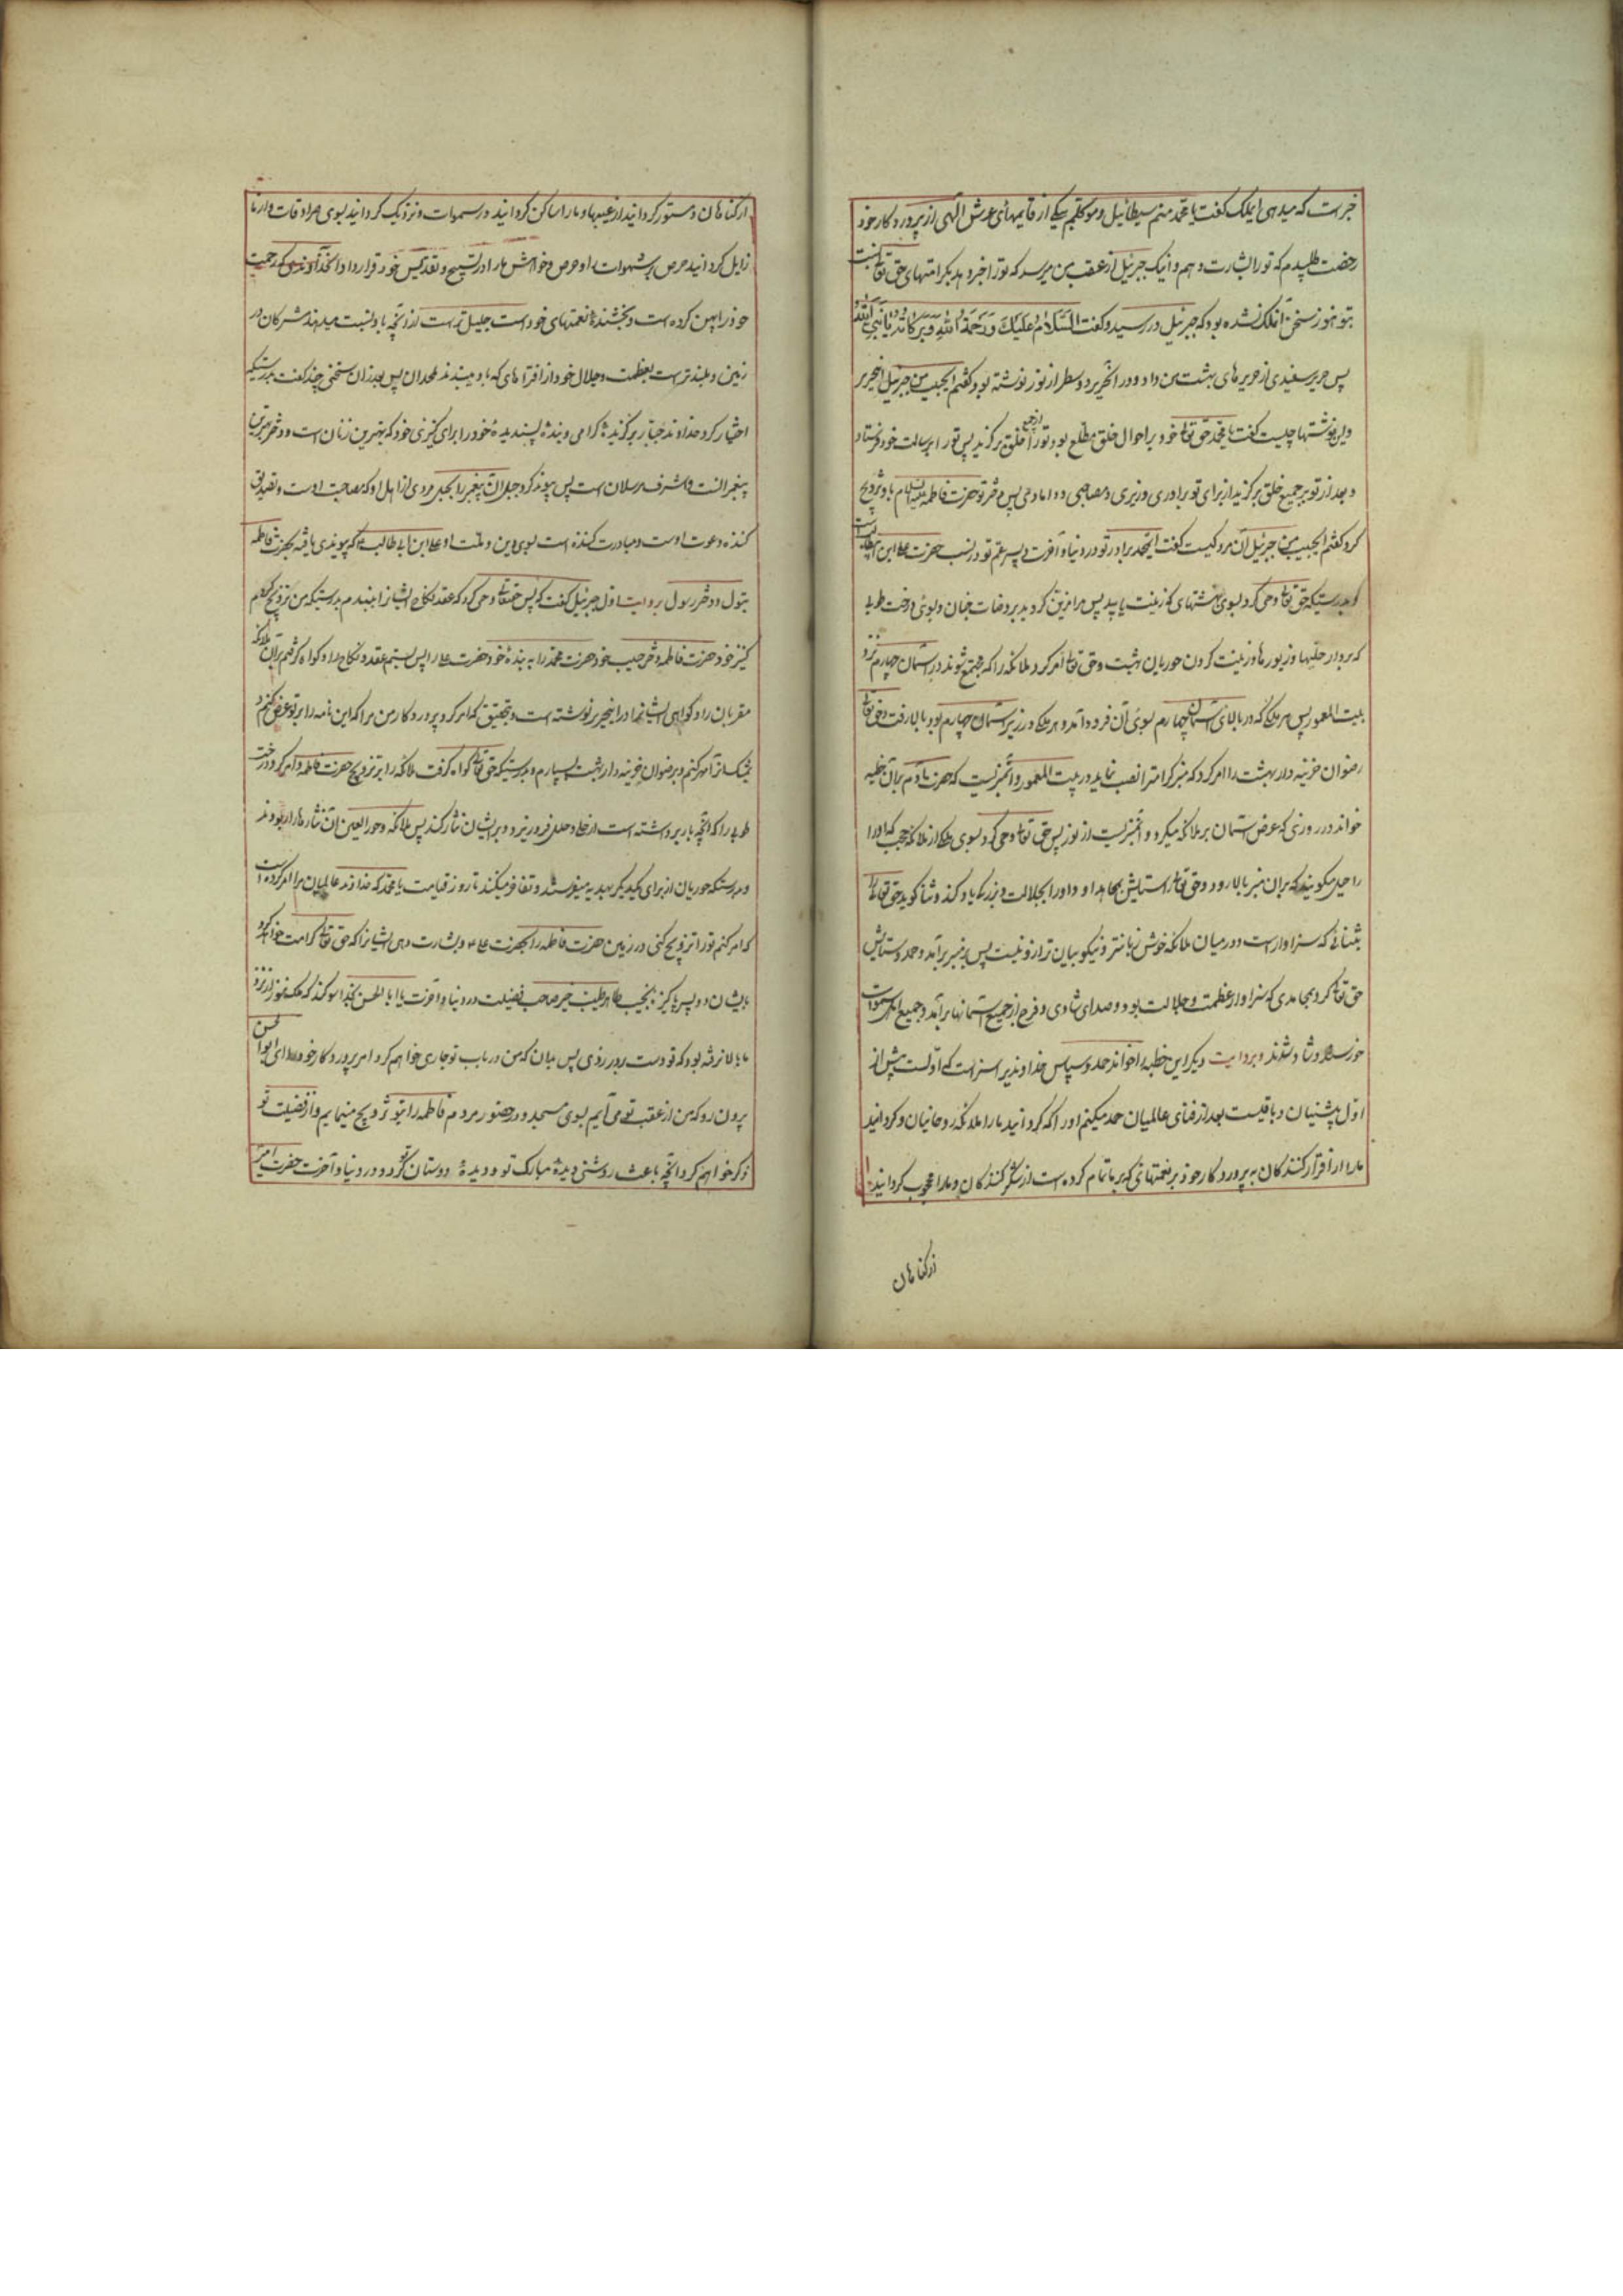 خبر است که میدهی ای ملک گفت یا محمد منم سیطائیل و موکلم بیکی از قایمهای عرش الهی از پروردکار خود
رخصت طلبیدم که تو را بشارت دهم و اینک جبرئیل از عقب من میرسد که تو را خبر دهد بکرامتهای حق تعالی نسبت
بتو هنوز سخن آن ملک نشده بود که جبرئیل در رسید و گفت السَّلامُ عَلَیکَ وَ رَحمَةُ اللهِ وَ بَرَکاتُهُ یا نَبِیَّ اللهِ
پس حریر سفیدی از حریرهای بهشت بمن داد و در آن حریر دو سطر از نور نوشته بود گفتم ای حبیب من جبرئیل این حریر
و این نوشتها چیست گفت یا محمد حق تعالی خود بر احوال خلق مطلع بود تو را از جمیع خلق برگزید پس تو را برسالت خود فرستاد
و بعد از تو بر جمیع خلق برگزید از برای تو برادری و وزیری و مصاحبی و دامادی پس دختر تو حضرت فاطمه علیها السلام باو تزویج
کرد گفتم ای حبیب من جبرئیل آن مرد کیست گفت ای محمد برادر تو در دنیا و آخرت و پسر عم تو در نسب حضرت علی ابن ابیطالب است
و بدرستیکه حق تعالی وحی کرد بسوی بهشتهای که زینت یابید پس مزین گردید بر روضات جنان و بسوی درخت طوبی
که بردار حلیها و زیورها و زینت کردن حوریان بهشت و حق تعالی امر کرد ملائکه را که جمع شوند در آسمان چهارم نزد
بیت المعمور پس هر ملکی که در بالای آسمان چهارم بود بسوی آن فرود آمد و هر ملکی در زیر آسمان چهارم بود بالا رفت و حق تعالی
رضوان خزینه دار بهشت را امر کرد که منبر کرامت را نصب نماید در بیت المعمور و آن منبریست که حضرت آدم بر آن خطبه
خواند در روزی که عرض اسمان بر ملائکه میکرد و آن منبریست از نور پس حق تعالی وحی کرد بسوی ملکی از ملائکه حجب که او را
راحیل میگویند که بر آن منبر بالا رود و حق تعالی را ستایش بمحامد او و او را بجلالت و بزرگی یاد کند و ثنا گوید حق تعالی را
بثنائی که سزاوار است و در میان ملائکه خوش زبان تر و نیکو بیان تر از او نیست پس بر منبر برآمد و حمد و ستایش
حق تعالی کرد بمحامدی که سزاوار عظمت و جلالت بود و صدای شادی و فرح از جمیع آسمانها برآمد و جمیع اهل سموات
خورسند و شاد شدند و بروایت دیگر این خطبه را خواند حمد و سپاس خداوندیرا سزاست که اوّلست پیش از
اوّل پیشنیان و باقیست بعد از فنای عالمیان حمد میکنم او را که گردانید ما را ملائکه روحانیان و گردانید
ما را از اقرار کنندگان به پروردکار خود بر نعمتهائی که بر ما تمام کرده است از شکر کنندگان و ما را محجوب گردانید
از کناهان
از کناهان و مستور گردانید از عیبها و ما را ساکن گردانید در سموات و نزدیک گردانید بسوی سرادقات و از ما
زایل گردانید حرص بر شهوات را و حرص و خواهش ما را در تسبیح و تقدیس خود قرار داد آن خداوندی که رحمت
خود را پهن کرده است و بخشندۀ نعمتهای خود است جلیل تر است از آنچه باو نسبت میدهند مشرکان در
زمین و بلند تر است بعظمت و جلال خود از افتراهای که باو میبندند ملحدان پس بعد از آن سخنی چند گفت بدرستیکه
اختیار کرد خداوند جبار برگزیدۀ گرامی و بندۀ پسندیدۀ خود را برای کنیزی خود که بهترین زنان است و دختر بهترین
پیغمبرانست و اشرف مرسلان است پس پیوند کرد حبل آن پیغمبر را بحبل مردی از اهل او که مصاحب اوست و تصدیق
کننده دعوت اوست و مبادرت کننده است بسوی دین و ملت او علی ابن ابی طالب ع که پیوندی یافته بحضرت فاطمه
بتول دختر رسول بروایت اول جبرئیل گفت که پس حقتعالی وحی کرد که عقد نکاح ایشانرا ببندم بدرستیکه من تزویج کردم
کنیز خود حضرت فاطمه دختر حبیب خود حضرت محمد را به بندۀ خود حضرت علی را پس بستم عقد و نکاح را و گواه گرفتم بر آن ملائکه
مقربان را و گواهی ایشانرا در این حریر نوشته است و بتحقیق که امر کرد پروردکار من مرا که این نامه را بر تو عرض کنم و
بمشک آنرا مهر کنم و برضوان خزینه دار بهشت بسپارم و بدرستیکه حق تعالی گواه گرفت ملائکه را بر تزویج حضرت فاطمه و امر کرد درخت
طوبی را که آنچه بار برداشته است از حلی و حلل فرو ریزد و بر ایشان نثار کند پس ملائکه و حور العین آن نثارها را ربودند
و بدرستیکه حوریان از برای یکدیگر بهدیه میفرستند و تفاخر میکنند تا روز قیامت یا محمد که خداوند عالمیان مرا امر کرده است
که امر کنم تو را تزویج کنی در زمین حضرت فاطمه را بحضرت علی ع و بشارت دهی ایشانرا که حق تعالی کرامت خواهد کرد
بایشان دو پسر پاکیزه نجیب طاهر طیب خیر صاحب فضیلت در دنیا و آخرت یا ابا الحسن بخدا سوگند که ملک هنوز از نزد
ما بالا نرفته بود که تو دست بر در زدی پس بدان که من در باب تو جاری خواهم کرد امر پروردکار خود را ای ابوالحسن
بیرون رو که من از عقب تو می آیم بسوی مسجد و در حضور مردم فاطمه را بتو تزویج مینمایم و از فضیلت تو
ذکر خواهم کرد آنچه باعث روشنی دیدۀ مبارک تو و دیدۀ دوستان تو گردد در دنیا و آخرت حضرت امیر